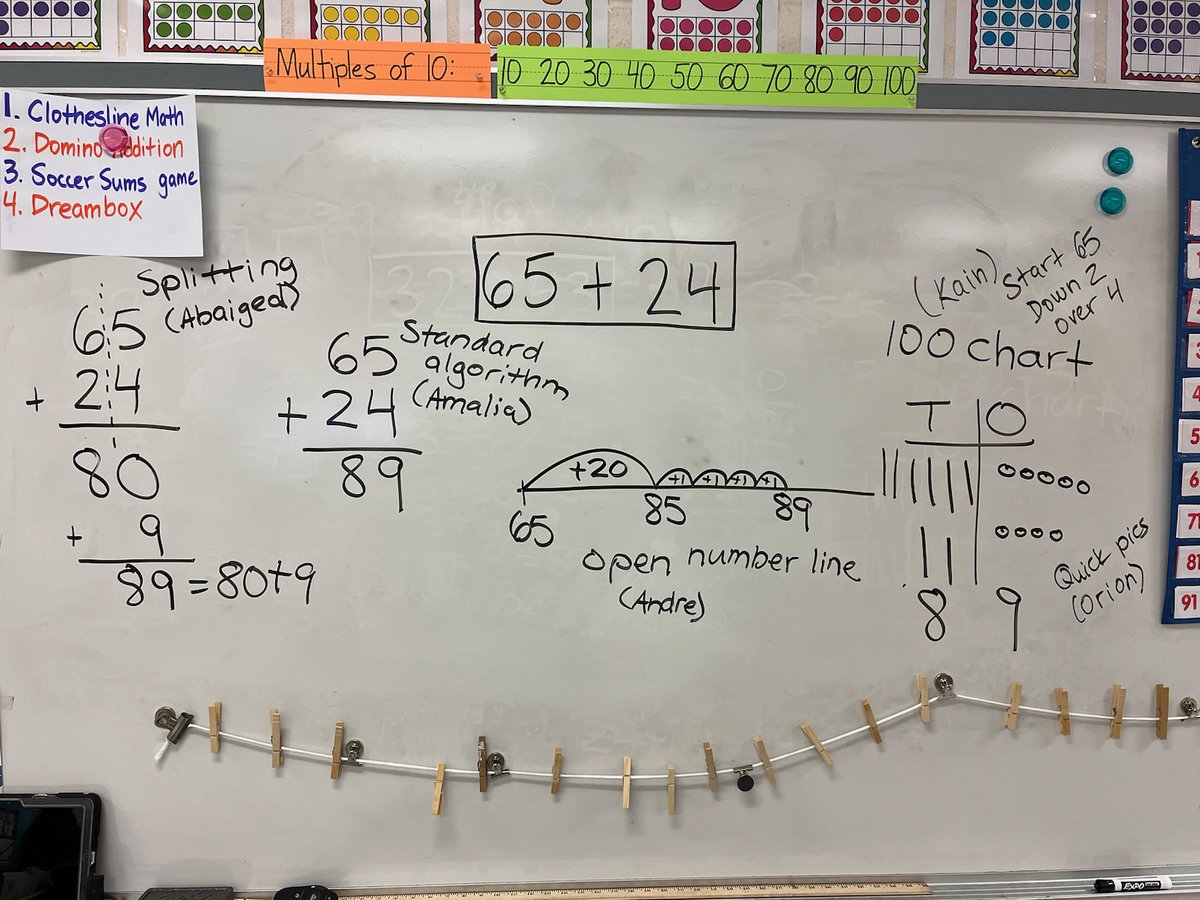 Multiples of 10:
10 20 30 40 50 60 70 80 90 100
1. Clothesline Math
2. Domino Addition
3. Soccer Sums game
4. Dreambox
65 + 24
Splitting
(Abaiged)
65
+ 24
80
+ 9
89 = 80+9
65
+ 24
89
Standard
algorithm
(Amalia)
+20 +1 +1 +1 +1
65 85 89
open number line
(Andre)
(Kain)
Start 65
Down 2
over 4
100 chart
T O
8 9
Quick pics
(Orion)
4
5
6
71
81
91
EXPO